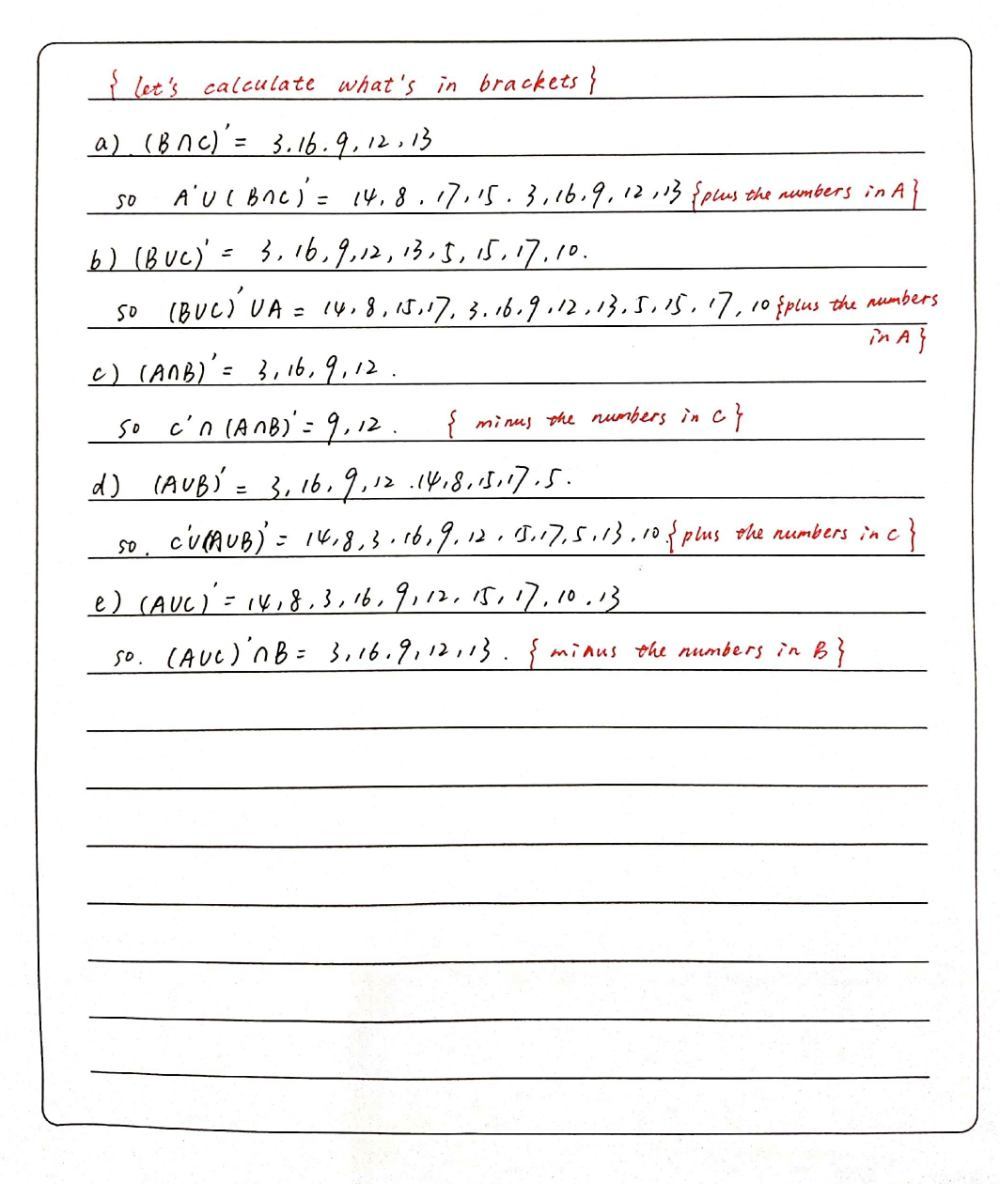 { let's calculate what's in brackets }
a) (B∩C)' = 3.16.9,12,13
so A'∪(B∩C)' = 14,8.17,15.3,16,9,12,13 {plus the numbers in A}
b) (B∪C)' = 3,16,9,12,13,5,15,17,10.
so (B∪C)'∪A = 14,8,15,17,3.16.9,12,13,5,15,17,10 {plus the numbers
in A}
c) (A∩B)' = 3,16,9,12.
so c'∩(A∩B)' = 9,12. { minus the numbers in c }
d) (A∪B)' = 3,16,9,12.14,8,15,17,5.
so. c'∪(A∪B)' = 14,8,3.16,9,12,15,17,5,13,10.{ plus the numbers in c }
e) (A∪C)' = 14,8,3,16,9,12,15,17,10.13
so. (A∪C)'∩B = 3,16.9,12,13. { minus the numbers in B }